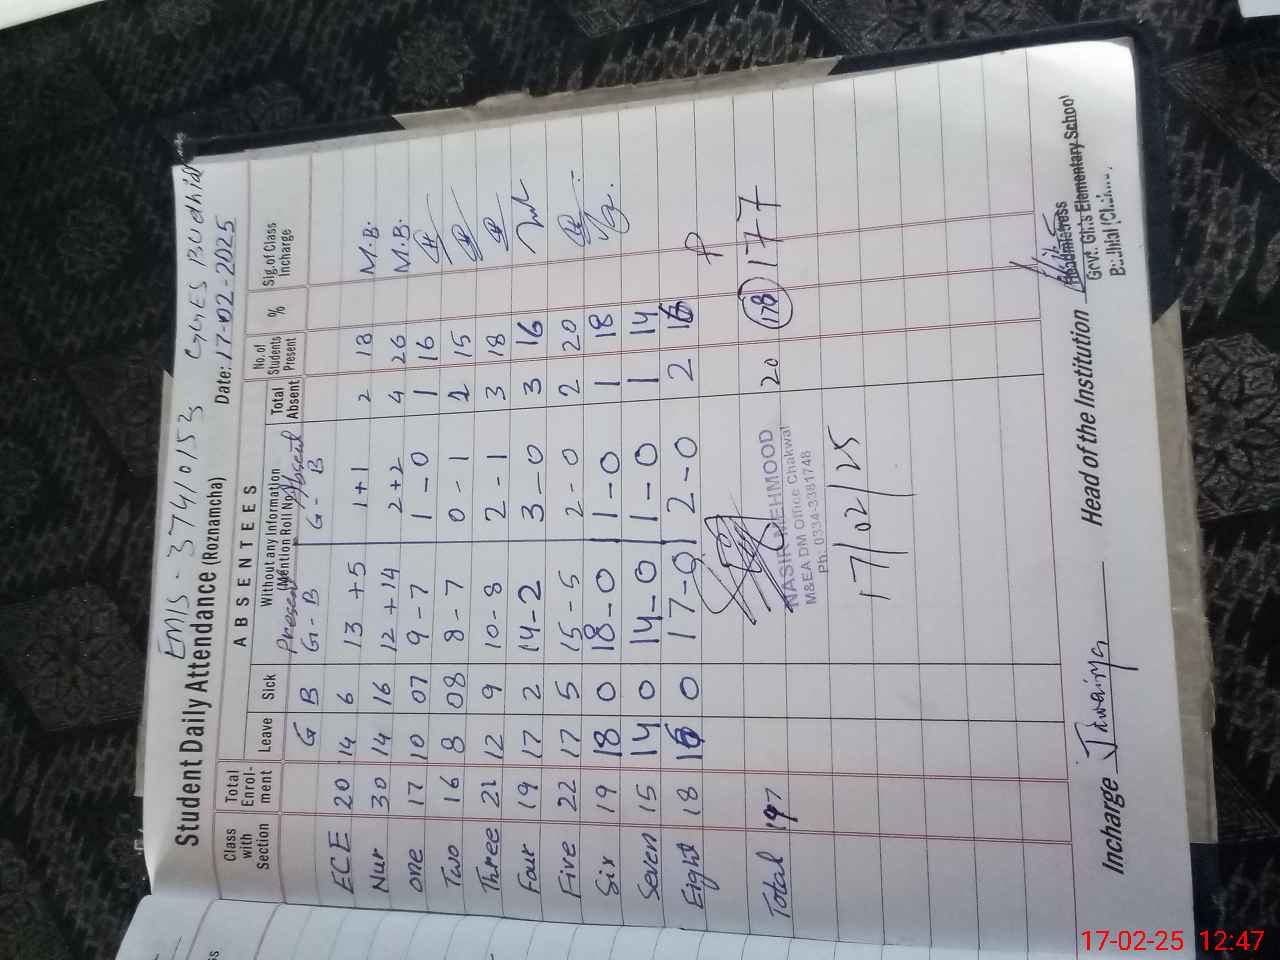 EMIS - 37410153 GGES Budhial
Student Daily Attendance (Roznamcha) Date: 17-02-2025
Class with Section Total Enrol-ment ABSENTEES Total Absent No. of Students Present % Sig. of Class Incharge
Leave Sick Without any Information (Mention Roll No)
G B Present G - B Absent G - B
ECE 20 14 6 13 + 5 1 + 1 2 18 M.B.
Nur 30 14 16 12 + 14 2 + 2 4 26 M.B.
One 17 10 07 9 - 7 1 - 0 1 16
Two 16 8 08 8 - 7 0 - 1 1 15
Three 21 12 9 10 - 8 2 - 1 3 18
Four 19 17 2 14 - 2 3 - 0 3 16
Five 22 17 5 15 - 5 2 - 0 2 20
Six 19 18 0 18 - 0 1 - 0 1 18
Seven 15 14 0 14 - 0 1 - 0 1 14
Eight 18 0 17 - 0 2 - 0 2 16
Total 197 20 178 177
NASIR MEHMOOD
M&EA DM Office Chakwal
Ph: 0334-3381748
17/02/25
Incharge Head of the Institution
Headmistress
Govt. Girls Elementary School
17-02-25 12:47